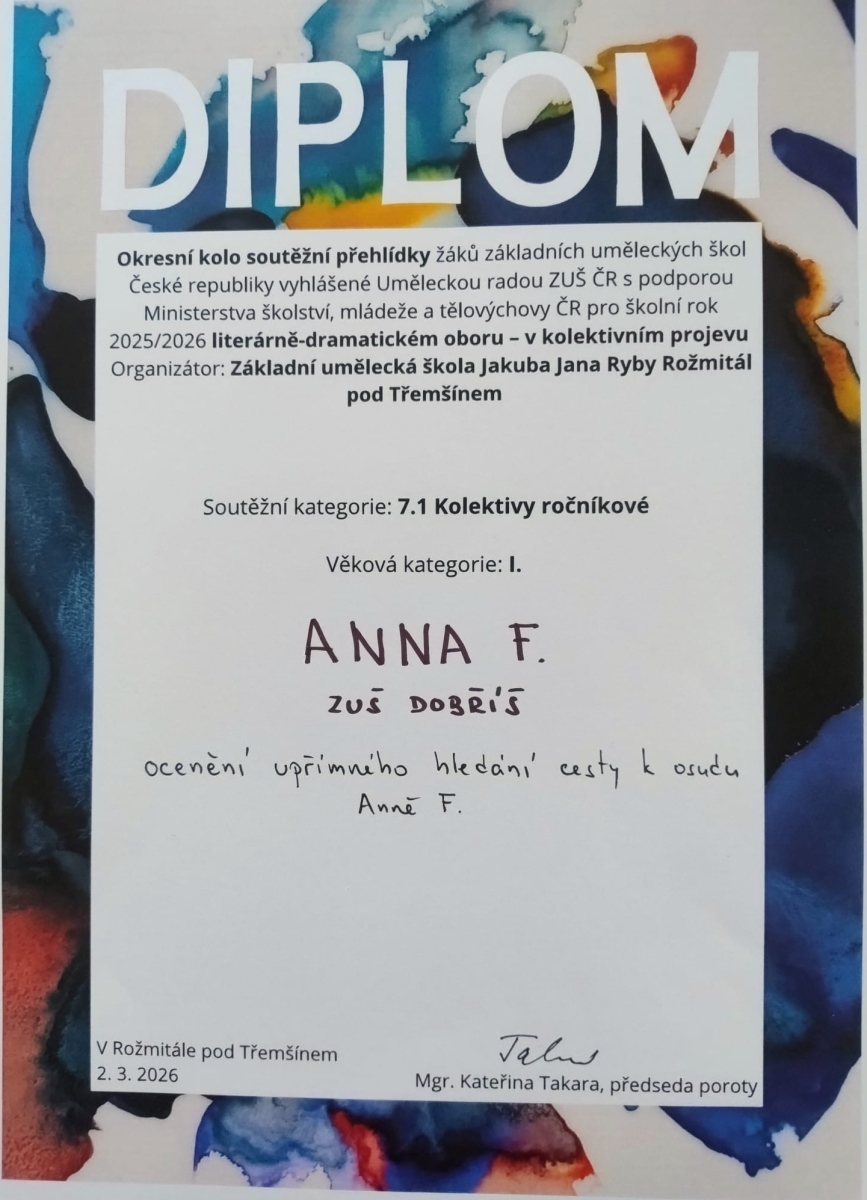 DIPLOM
Okresní kolo soutěžní přehlídky žáků základních uměleckých škol
České republiky vyhlášené Uměleckou radou ZUŠ ČR s podporou
Ministerstva školství, mládeže a tělovýchovy ČR pro školní rok
2025/2026 literárně-dramatickém oboru – v kolektivním projevu
Organizátor: Základní umělecká škola Jakuba Jana Ryby Rožmitál
pod Třemšínem
Soutěžní kategorie: 7.1 Kolektivy ročníkové
Věková kategorie: I.
ANNA F.
ZUŠ DOBŘÍŠ
ocenění upřímného hledání cesty k osudu
Anně F.
V Rožmitále pod Třemšínem
2. 3. 2026
Mgr. Kateřina Takara, předseda poroty